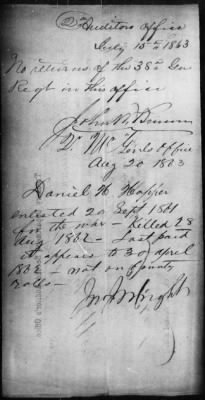 Auditors Office
July 15th 1863
No returns of the 38th Geo
Regt in this office
Aug 20 1863
Daniel H. Hopper
enlisted 20 Sept 1861
for the war - Killed 28
Aug 1862 - Last paid
it appears to 30 April
1862 - not on bounty
Rolls -